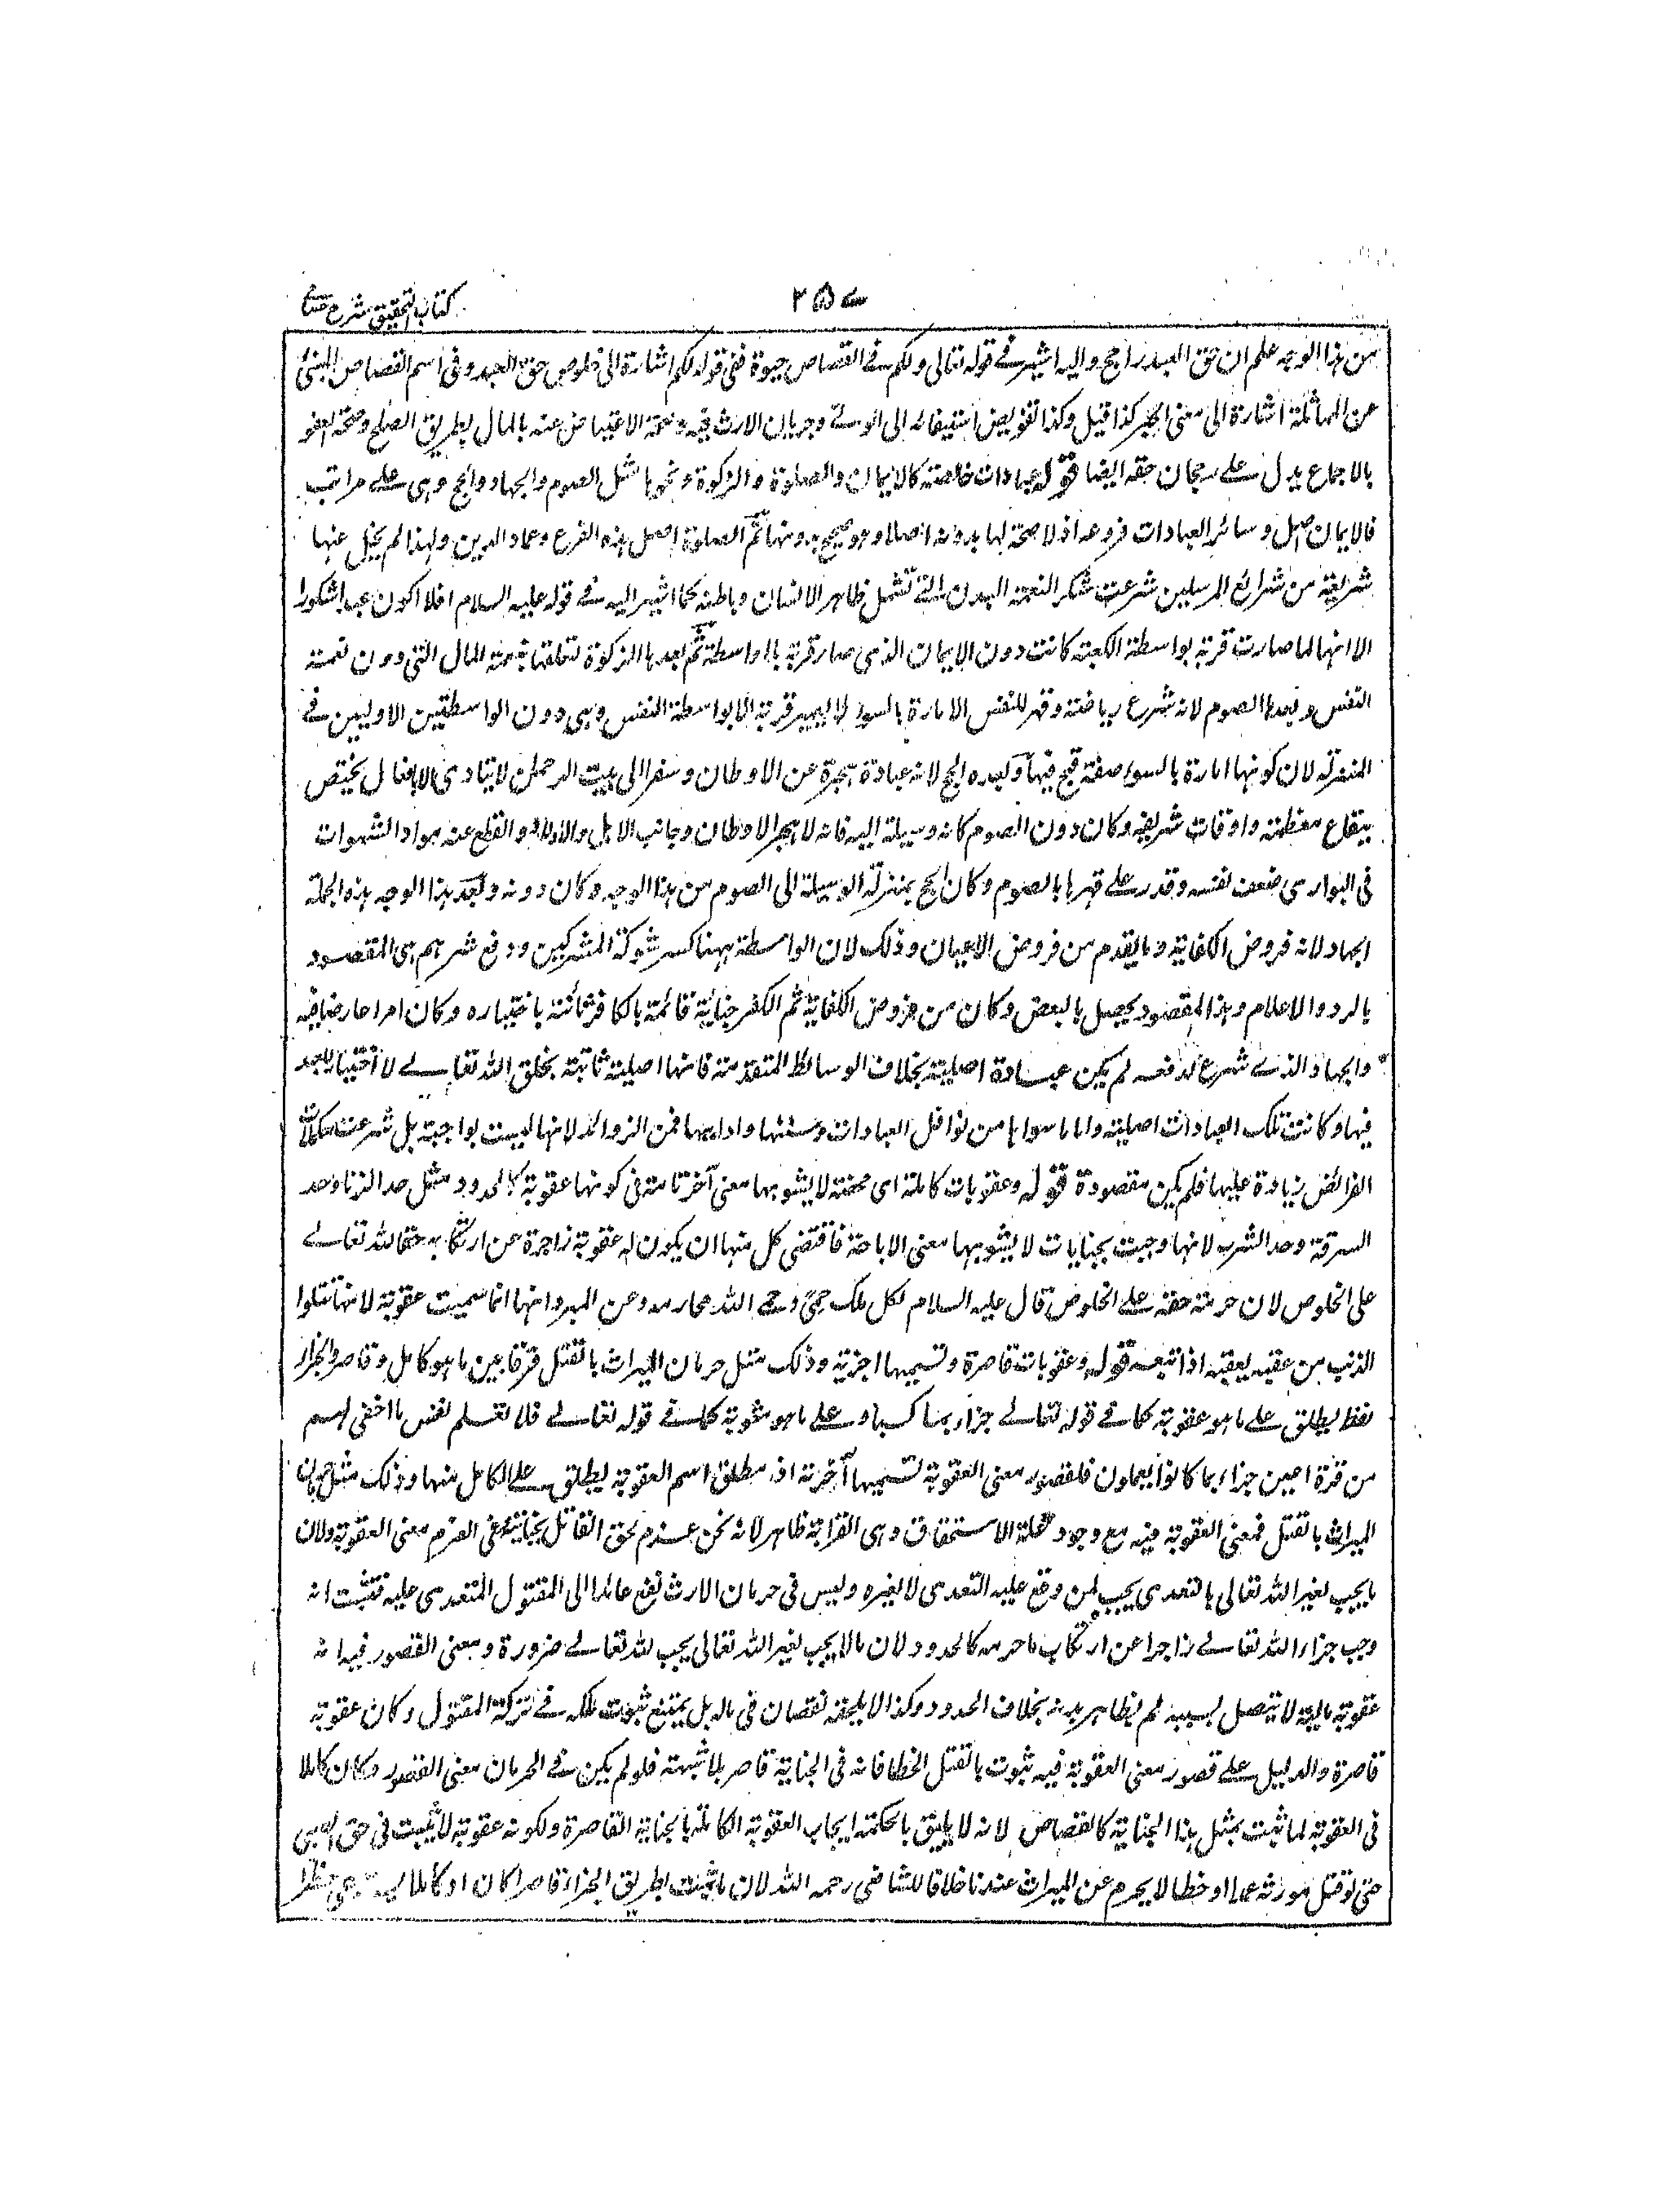 كتاب التحقيق شرح حسامي
٢٥٧
من هذا الوجه علم ان حق العبد راجح واليه اشير في قوله تعالى ولكم في القصاص حيوة ففي قوله لكم اشارة الى خلوص حق العبد وفي اسم القصاص المنبئ
عن المماثلة اشارة الى معنى الجبر كذا قيل وكذا تفويض استيفائه الى الولي وجريان الارث فيه وصحة الاعتياض عنه بالمال بطريق الصلح وصحة العفو
بالاجماع يدل على رجحان حقه ايضا قوله عبادات خالصة كالايمان والصلوة والزكوة ونحوها مثل الصوم والجهاد والحج وهي على مراتب
فالايمان اصل وسائر العبادات فروعه اذ لا صحة لها بدونه اصلا وهو صحيح بدونها ثم الصلوة اصل هذه الفرع وعماد الدين ولهذا لم يخل عنها
شريعة من شرائع المرسلين شرعت شكر النعمة البدن التي تشمل ظاهر الانسان وباطنه كما اشير اليه في قوله عليه السلام افلا اكون عبدا شكورا
الا انها لما صارت قربة بواسطة الكعبة كانت دون الايمان الذي صار قربة بلا واسطة ثم بعدها الزكوة لتعلقها بنعمة المال التي دون نعمة
النفس وبعدها الصوم لانه شرع رياضة وقهر للنفس الامارة بالسوء لا يصير قربة الا بواسطة النفس وهي دون الواسطتين الاوليين في
المنزلة لان كونها امارة بالسوء صفة قبح فيها وبعده الحج لانه عبادة هجرة عن الاوطان وسفر الى بيت الرحمن لا يتادى الا بافعال يختص
ببقاع معظمة واوقات شريفة وكان دون الصوم كانه وسيلة اليه فانه لا هجر الاوطان وجانب الاهل والاولاد وانقطع عنه مواد الشهوات
في البوادي ضعفت نفسه وقدر على قهرها بالصوم وكان الحج بمنزلة الوسيلة الى الصوم من هذا الوجه وكان دونه وبعد هذا الوجه هذه الجملة
الجهاد لانه فروض الكفاية وما يقدم من فروض الاعيان وذلك لان الواسطة ههنا كسر شوكة المشركين ودفع شرهم هي المقصود
بالرد والاعلام وهذا المقصود يحصل بالبعض وكان من فروض الكفاية ثم الكفر جناية قائمة بالكافر ثابتة باختياره وكان امرا عارضا فيه
والجهاد الذي شرع لدفعه لم يكن عبادة اصلية بخلاف الوسائط المتقدمة فانها اصلية ثابتة بخلق الله تعالى لا اختيار للعبد
فيها وكانت تلك العبادات اصلية واما ما سواها من نوافل العبادات وسننها وادابها فمن الزوائد لانها ليست بواجبة بل شرعت مكملات
الفرائض زيادة عليها فلم يكن مقصودة قوله وعقوبات كاملة اي محضة لا يشوبها معنى آخر تامة في كونها عقوبة كالحدود مثل حد الزنا وحد
السرقة وحد الشرب لانها وجبت بجنايات لا يشوبها معنى الاباحة فاقتضى كل منها ان يكون له عقوبة زاجرة عن ارتكابه حقا لله تعالى
على الخلوص لان حرمته حقه على الخلوص قال عليه السلام لكل ملك حمى وحمى الله محارمه وعن المبرد انها انما سميت عقوبة لانها تتلوا
الذنب من عقبه يعقبه اذا تبعه قوله وعقوبات قاصرة وتسميها اجزية وذلك مثل حرمان الميراث بالقتل فرقا بين ما هو كامل وقاصر والجزاء
لفظ يطلق على ما هو عقوبة كما في قوله تعالى جزاء بما كسبا وعلى ما هو مثوبة كما في قوله تعالى فلا تعلم نفس ما اخفي لهم
من قرة اعين جزاء بما كانوا يعملون فلقصور معنى العقوبة تسميها اجزية اذ مطلق اسم العقوبة يطلق على الكامل منها وذلك مثل حرمان
الميراث بالقتل فمعنى العقوبة فيه مع وجود علة الاستحقاق وهي القرابة ظاهر لانه نحن عزم لحق القاتل بجنايته وفي الغرم معنى العقوبة ولان
ما يجب لغير الله تعالى بالتعدي يجب لمن وقع عليه التعدي لا لغيره وليس في حرمان الارث نفع عائد الى المقتول المتعدي عليه فثبت انه
وجب جزاء الله تعالى زاجرا عن ارتكاب ما حرمه كالحدود لان ما لا يجب لغير الله تعالى يجب لله تعالى ضرورة ومعنى القصور فيه انه
عقوبة مالية لا تتصل بسببه الم بظاهر بدنه بخلاف الحدود وكذا لا يلحقه نقصان في ماله بل يمتنع ثبوت ملكه في تركة المقتول وكان عقوبة
قاصرة والدليل على قصور معنى العقوبة فيه ثبوت بالقتل الخطا فانه في الجناية قاصر بلا شبهة فلو لم يكن في الحرمان معنى القصور وكان كاملا
في العقوبة لما ثبت بمثل هذا الجناية كالقصاص لانه لا يليق بالحكمة ايجاب العقوبة الكاملة بالجناية القاصرة ولكونه عقوبة لا يثبت في حق الصبي
حتى لو قتل مورثه عمدا او خطا لا يحرم عن الميراث عندنا خلافا للشافعي رحمه الله لان ما يثبت بطريق الجزاء قاصرا كان او كاملا